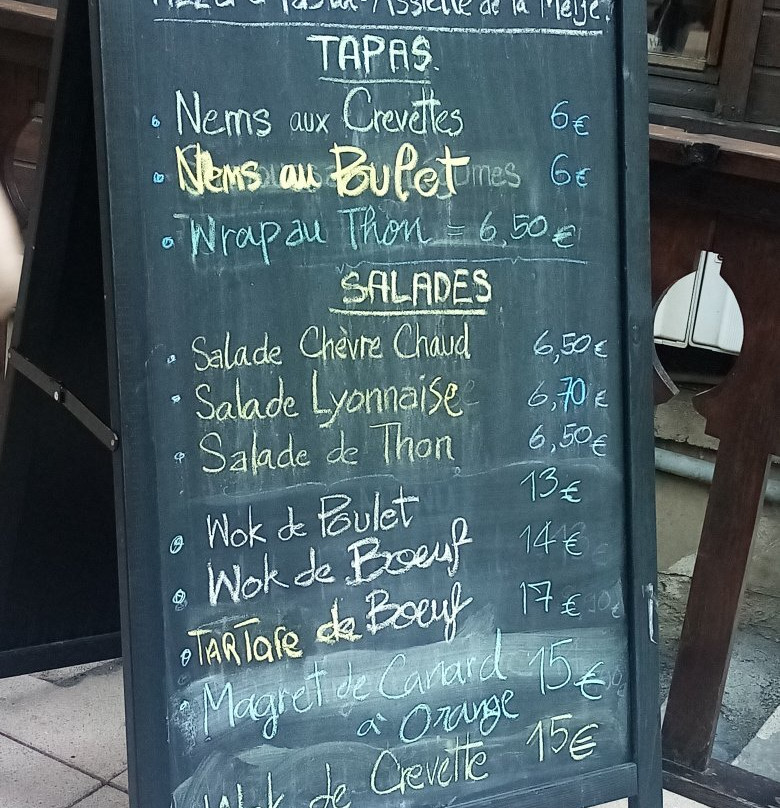 Assiette de la Meije.
TAPAS.
Nems aux Crevettes 6€
Nems au Poulet 6€
Wrap au Thon = 6,50€
SALADES
Salade Chèvre Chaud 6,50€
Salade Lyonnaise 6,70€
Salade de Thon 6,50€
Wok de Poulet 13€
Wok de Boeuf 14€
TARTare de Boeuf 17€
Magret de Canard 15€
à Orange
Wok de Crevette 15€